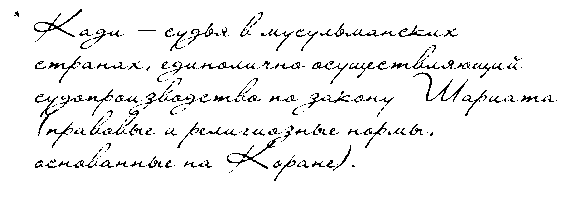 * Кади – судья в мусульманских
странах, единолично осуществляющий
судопроизводство по закону Шариата
(правовые и религиозные нормы,
основанные на Коране).